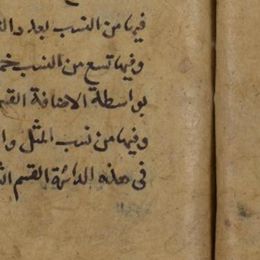 فيها من النسب بعد دالـ
وفيها تسع من النسب خمـ
بواسطة الاضافة القسـ
وفيها من نسب المثل وا
فى هذه الدائرة القسم الثـ